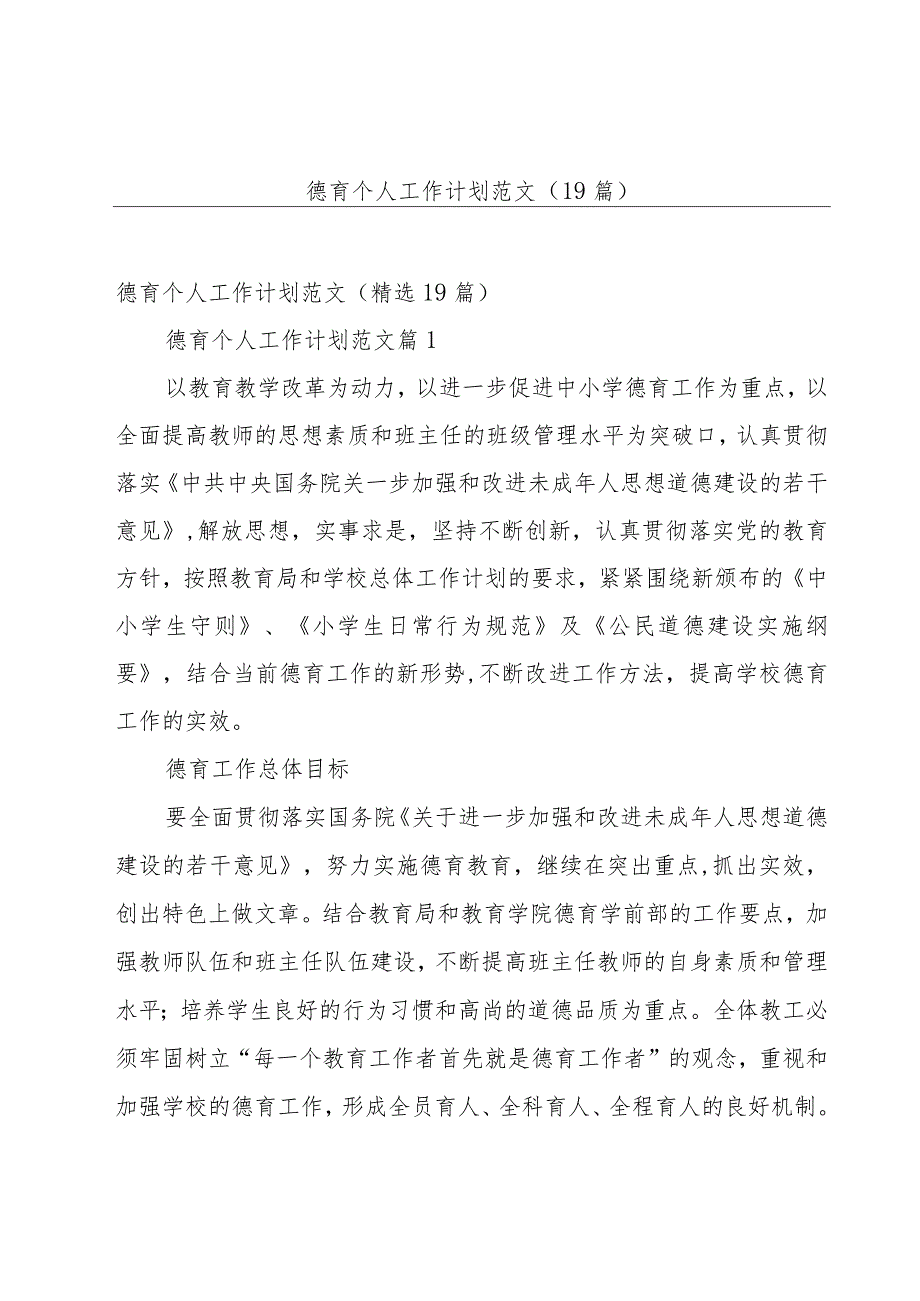 德育个人工作计划范文（19 篇）
德育个人工作计划范文（精选 19 篇）
德育个人工作计划范文篇 1
以教育教学改革为动力，以进一步促进中小学德育工作为重点，以
全面提高教师的思想素质和班主任的班级管理水平为突破口，认真贯彻
落实《中共中央国务院关一步加强和改进未成年人思想道德建设的若干
意见》,解放思想，实事求是，坚持不断创新，认真贯彻落实党的教育
方针，按照教育局和学校总体工作计划的要求，紧紧围绕新颁布的《中
小学生守则》、《小学生日常行为规范》及《公民道德建设实施纲
要》，结合当前德育工作的新形势,不断改进工作方法，提高学校德育
工作的实效。
德育工作总体目标
要全面贯彻落实国务院《关于进一步加强和改进未成年人思想道德
建设的若干意见》，努力实施德育教育，继续在突出重点,抓出实效，
创出特色上做文章。结合教育局和教育学院德育学前部的工作要点，加
强教师队伍和班主任队伍建设，不断提高班主任教师的自身素质和管理
水平；培养学生良好的行为习惯和高尚的道德品质为重点。全体教工必
须牢固树立“每一个教育工作者首先就是德育工作者”的观念，重视和
加强学校的德育工作，形成全员育人、全科育人、全程育人的良好机制。